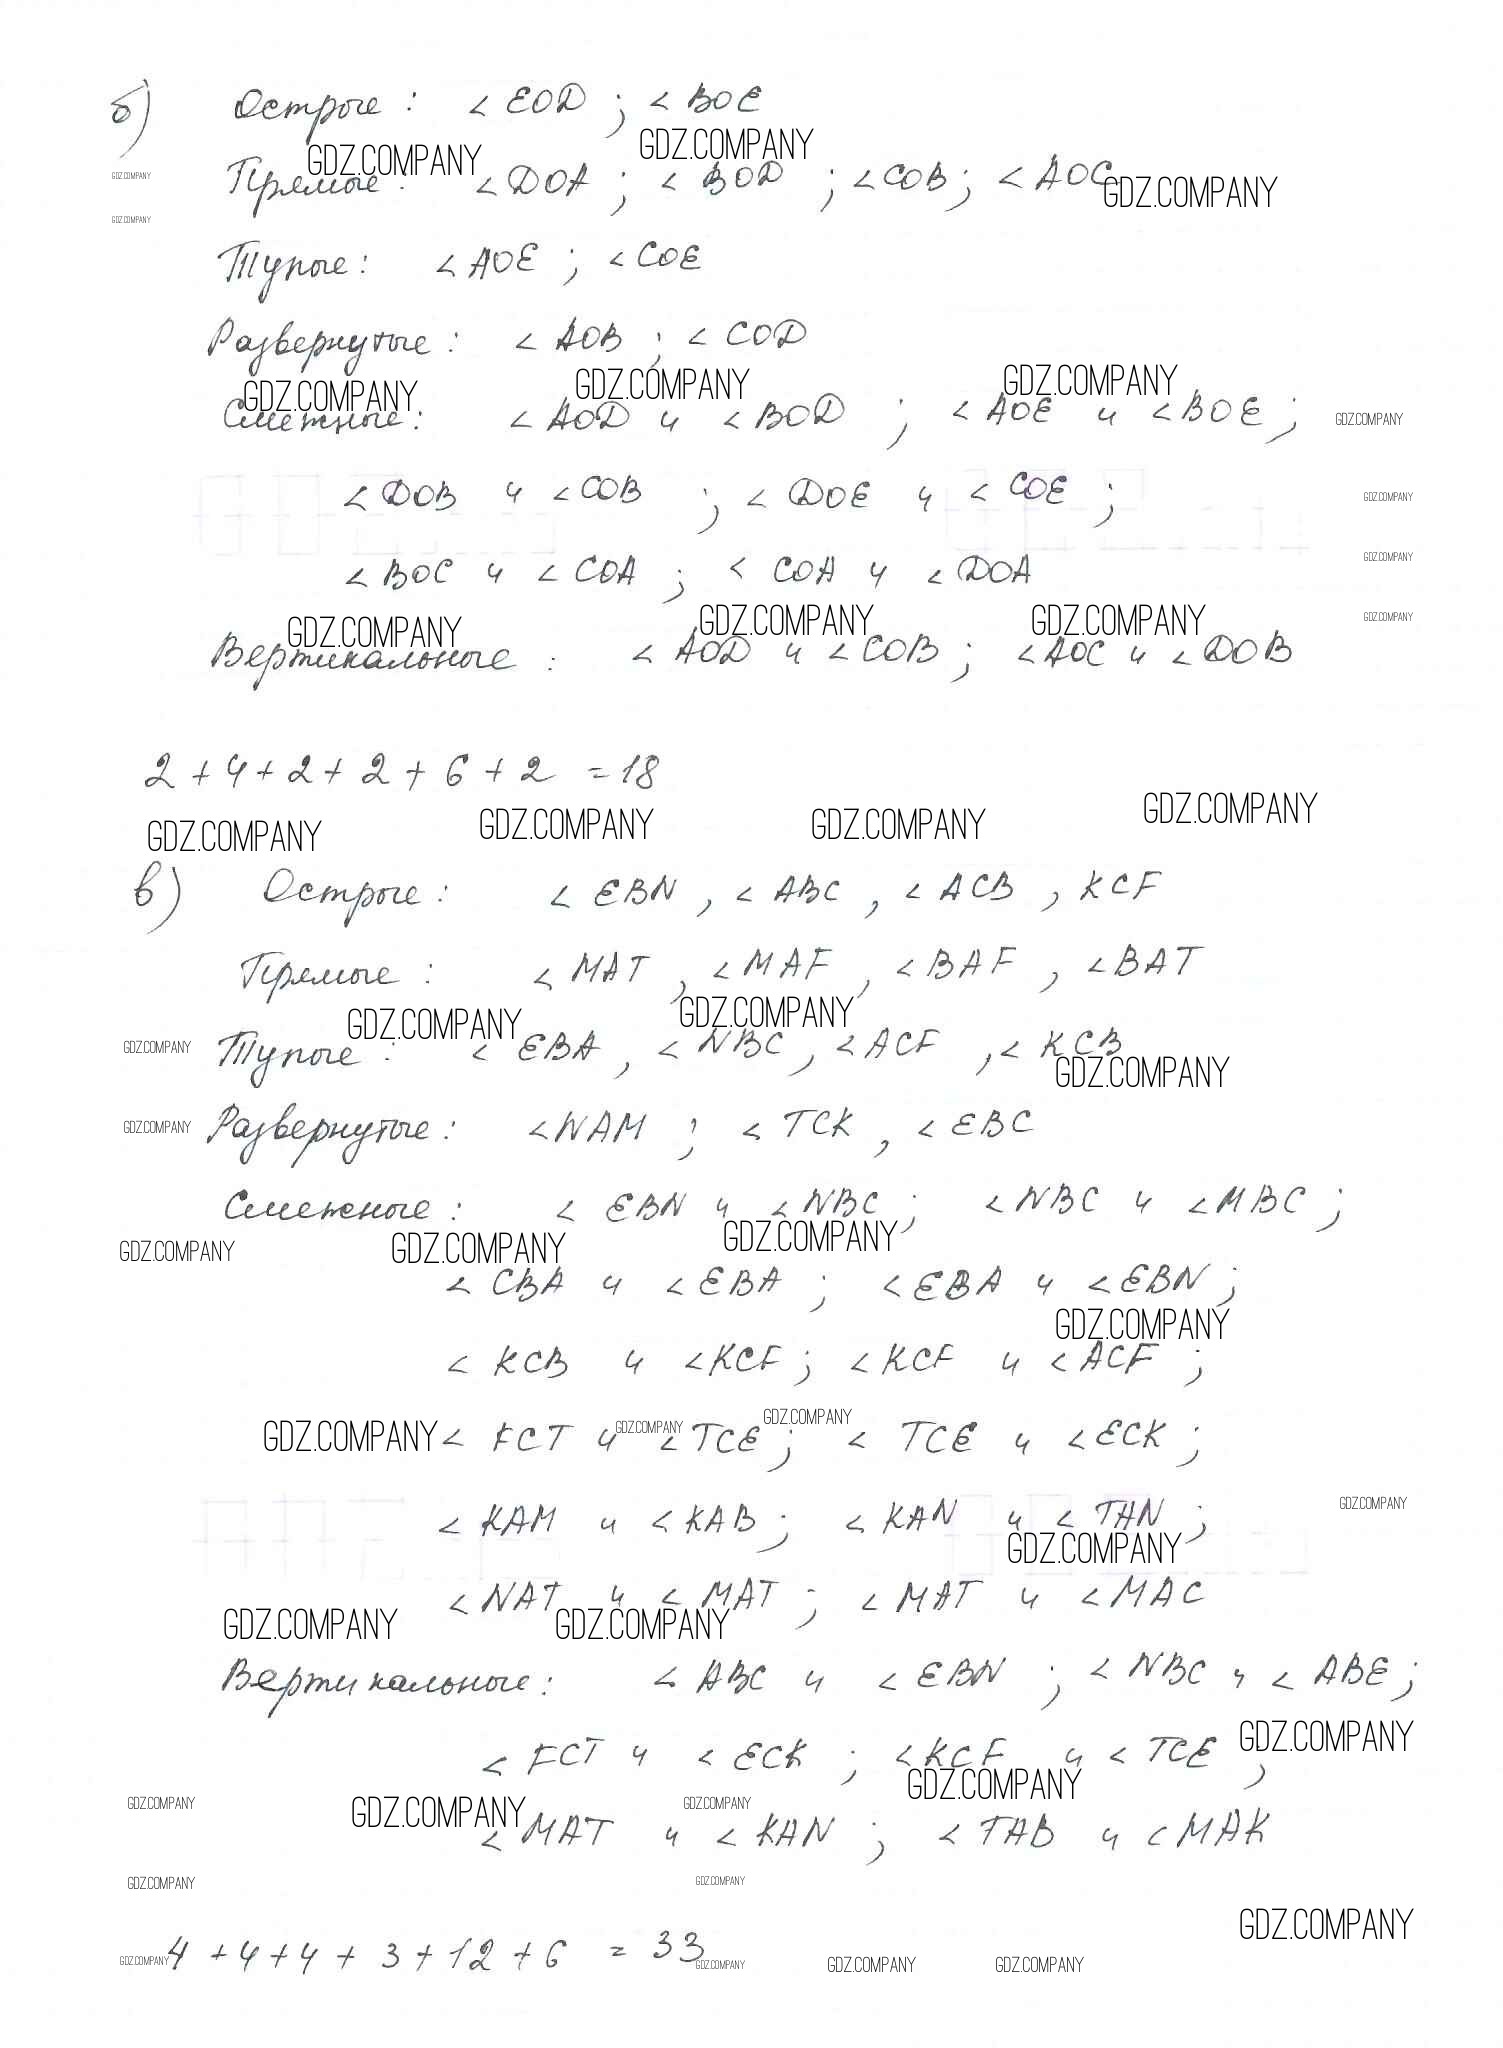 б) Острые : < EOD ; < BOE
GDZ.COMPANY GDZ.COMPANY
GDZ.COMPANY Прямые : < DOA ; < BOD ; < COB ; < AOC GDZ.COMPANY
GDZ.COMPANY
Тупые : < AOE ; < COE
Развернутые : < AOB ; < COD
GDZ.COMPANY GDZ.COMPANY GDZ.COMPANY
Смежные : < AOD и < BOD ; < AOE и < BOE ; GDZ.COMPANY
< DOB и < COB ; < DOE и < COE ; GDZ.COMPANY
< BOC и < COA ; < COA и < DOA GDZ.COMPANY
GDZ.COMPANY GDZ.COMPANY GDZ.COMPANY GDZ.COMPANY
Вертикальные : < AOD и < COB ; < AOC и < DOB
2 + 4 + 2 + 2 + 6 + 2 = 18
GDZ.COMPANY GDZ.COMPANY GDZ.COMPANY GDZ.COMPANY
в) Острые : < EBN , < ABC , < ACB , KCF
Прямые : < MAT , < MAF , < BAF , < BAT
GDZ.COMPANY GDZ.COMPANY
GDZ.COMPANY Тупые : < EBA , < NBC , < ACF , < KCB
GDZ.COMPANY
GDZ.COMPANY Развернутые : < NAM ; < TCK , < EBC
Смежные : < EBN и < NBC ; < NBC и < MBC ;
GDZ.COMPANY GDZ.COMPANY GDZ.COMPANY
< CBA и < EBA ; < EBA и < EBN ;
GDZ.COMPANY
< KCB и < KCF ; < KCF и < ACF ;
GDZ.COMPANY GDZ.COMPANY GDZ.COMPANY
< FCT и < TCE ; < TCE и < ECK ;
< KAM и < KAB ; < KAN и < TAN ; GDZ.COMPANY
GDZ.COMPANY
< NAT и < MAT ; < MAT и < MAC
GDZ.COMPANY GDZ.COMPANY
Вертикальные : < ABC и < EBN ; < NBC и < ABE ;
< FCT и < ECK ; < KCF и < TCE , GDZ.COMPANY
GDZ.COMPANY GDZ.COMPANY GDZ.COMPANY GDZ.COMPANY
< MAT и < KAN ; < TAB и < MAK
GDZ.COMPANY GDZ.COMPANY
GDZ.COMPANY
4 + 4 + 4 + 3 + 12 + 6 = 33
GDZ.COMPANY GDZ.COMPANY GDZ.COMPANY GDZ.COMPANY